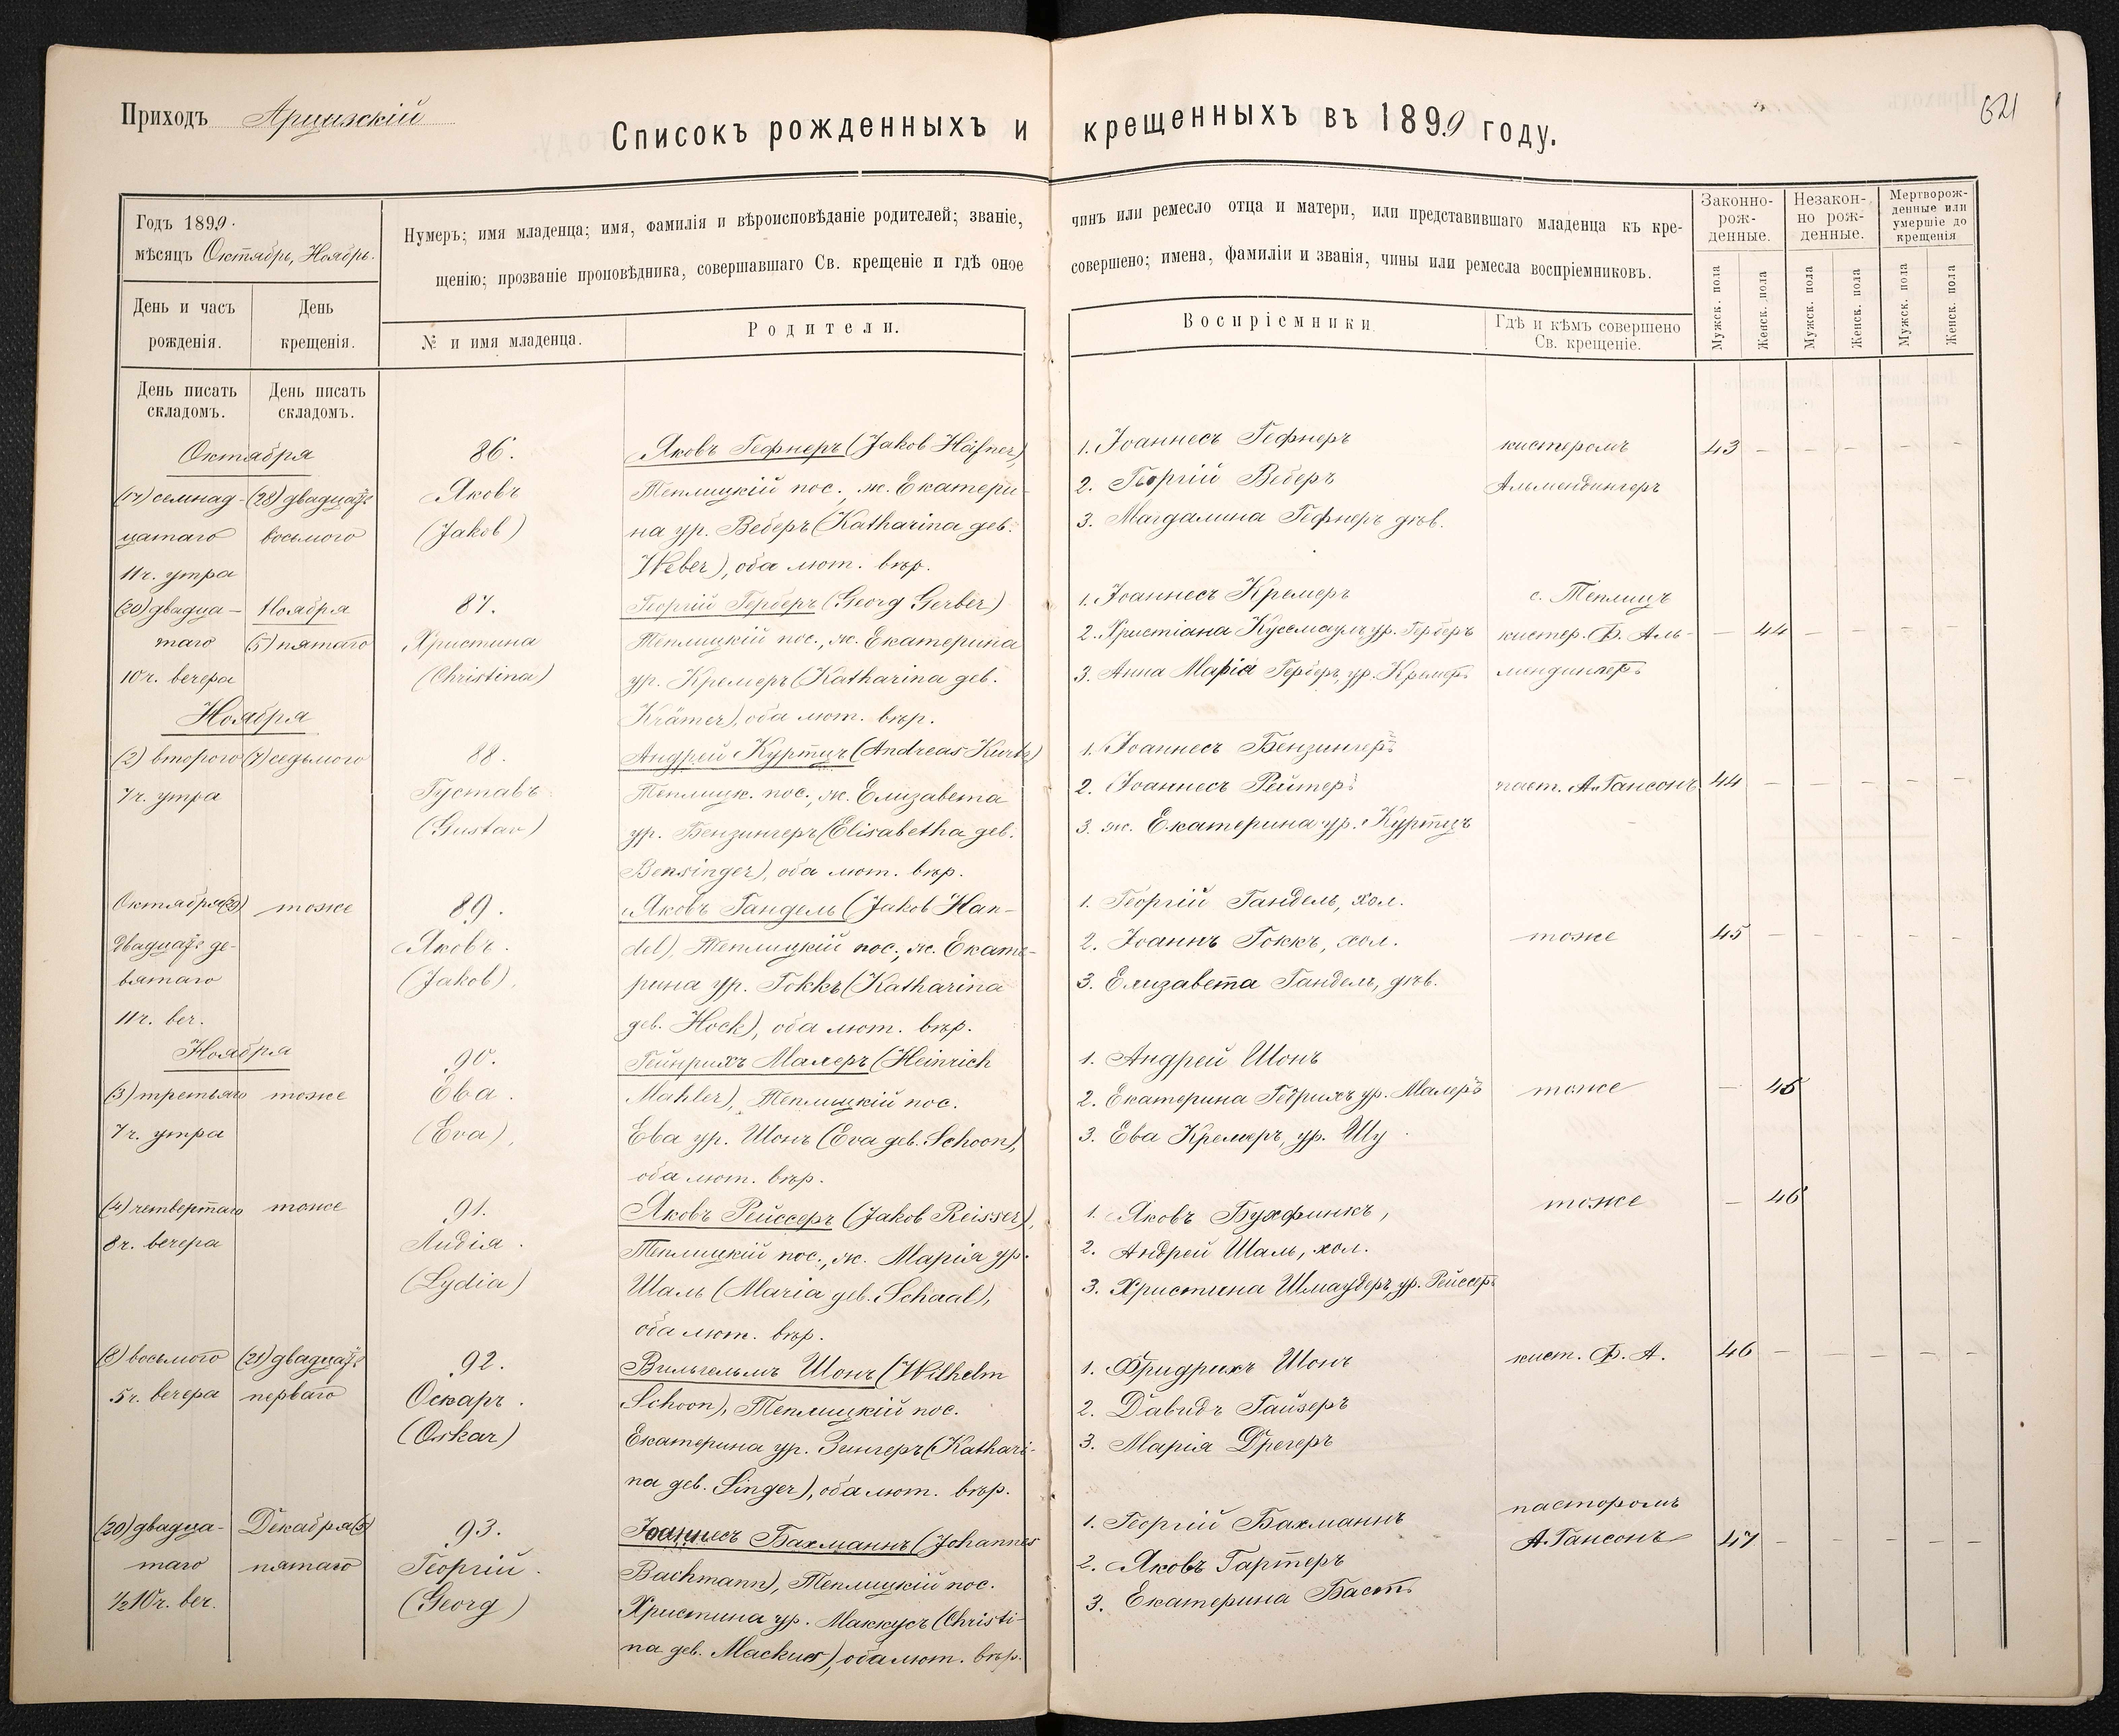 Приходъ Арцизскій
621
Списокъ рожденныхъ и крещенныхъ въ 1899 году.
Годъ 1899.
мѣсяцъ Октябрь, Ноябрь.
День и часъ рожденія.
День крещенія.
Нумеръ; имя младенца; имя, фамилія и вѣроисповѣданіе родителей; званіе, чинъ или ремесло отца и матери, или представившаго младенца къ кре-
щенію; прозваніе проповѣдника, совершавшаго Св. крещеніе и гдѣ оное совершено; имена, фамиліи и званія, чины или ремесла воспріемниковъ.
№ и имя младенца.
Родители.
Воспріемники
Гдѣ и кѣмъ совершено
Св. крещеніе.
Законно-
рож-
денные.
Незакон-
но рож-
денные.
Мертворож-
денные или
умершіе до
крещенія
Мужск. пола
Женск. пола
Мужск. пола
Женск. пола
Мужск. пола
Женск. пола
День писать
складомъ.
День писать
складомъ.
Октября
(17) семнад-
цатаго
11 ч. утра
(28) двадцать
восьмого
86.
Яковъ
(Jakob)
Яковъ Гефнеръ (Jakob Häfner),
Теплицкій пос., ж. Екатери-
на ур. Веберъ (Katharina geb.
Weber), оба лют. вѣр.
1. Іоаннесъ Гефнеръ
2. Георгій Веберъ
3. Магдалина Гефнеръ дѣв.
кистеромъ
Альмендингеръ
43 – – – – –
(20) двадца-
таго
10 ч. вечера
Ноября
(5) пятаго
87.
Христина
(Christina)
Георгій Герберъ (Georg Gerber)
Теплицкій пос., ж. Екатерина
ур. Кремеръ (Katharina geb.
Krämer), оба лют. вѣр.
1. Іоаннесъ Кремеръ
2. Христіана Куссмауль ур. Герберъ
3. Анна Марія Герберъ, ур. Кремеръ
с. Теплицъ
кистер. Ф. Аль-
мендингеръ
– 44 – – – –
Ноября
(2) второго
7 ч. утра
(7) седьмого
88.
Густавъ
(Gustav)
Андрей Куртцъ (Andreas Kurtz)
Теплицк. пос., ж. Елизавета
ур. Бензингеръ (Elisabetha geb.
Bensinger), оба лют. вѣр.
1. Іоаннесъ Бензингеръ
2. Іоаннесъ Рейтеръ
3. ж. Екатерина ур. Куртцъ
паст. А. Гансонъ
44 – – – – –
Октября (29)
двадцать де-
вятаго
11 ч. веч.
тоже
89.
Яковъ.
(Jakob),
Яковъ Гандель (Jakob Han-
del), Теплицкій пос., ж. Екате-
рина ур. Гоккъ (Katharina
geb. Hock), оба лют. вѣр.
1. Георгій Гандель, хол.
2. Іоаннъ Гоккъ, хол.
3. Елизавета Гандель, дѣв.
тоже
45 – – – – –
Ноября
(3) третьяго
7 ч. утра
тоже
90.
Ева.
(Eva),
Гейнрихъ Малеръ (Heinrich
Mahler), Теплицкій пос.
Ева ур. Шонъ (Eva geb. Schoon),
оба лют. вѣр.
1. Андрей Шонъ
2. Екатерина Гебрихъ ур. Малеръ
3. Ева Кремеръ, ур. Шу
тоже
– 45
(4) четвертаго
8 ч. вечера
тоже
91.
Лидія.
(Lydia)
Яковъ Рейссеръ (Jakob Reisser),
Теплицкій пос., ж. Марія ур.
Шаль (Maria geb. Schaal),
оба лют. вѣр.
1. Яковъ Бухфинкъ,
2. Андрей Шаль, хол.
3. Христина Шмаудеръ, ур. Рейссеръ
тоже
– 46
(8) восьмого
5 ч. вечера
(21) двадцать
перваго
92.
Оскаръ.
(Oskar)
Вильгельмъ Шонъ (Wilhelm
Schoon), Теплицкій пос.
Екатерина ур. Зингеръ (Kathari-
na geb. Singer), оба лют. вѣр.
1. Фридрихъ Шонъ
2. Давидъ Гайзеръ
3. Марія Дрегеръ
кист. Ф. А.
46 – – – – –
(20) двадца-
таго
½10 ч. веч.
Декабря (5)
пятаго
93.
Георгій.
(Georg)
Іоаннесъ Бахманнъ (Johannes
Bachmann), Теплицкій пос.
Христина ур. Маккусъ (Christi-
na geb. Mackus), оба лют. вѣр.
1. Георгій Бахманнъ
2. Яковъ Гартеръ
3. Екатерина Бастъ
пасторомъ
А. Гансонъ
47 – – – – –